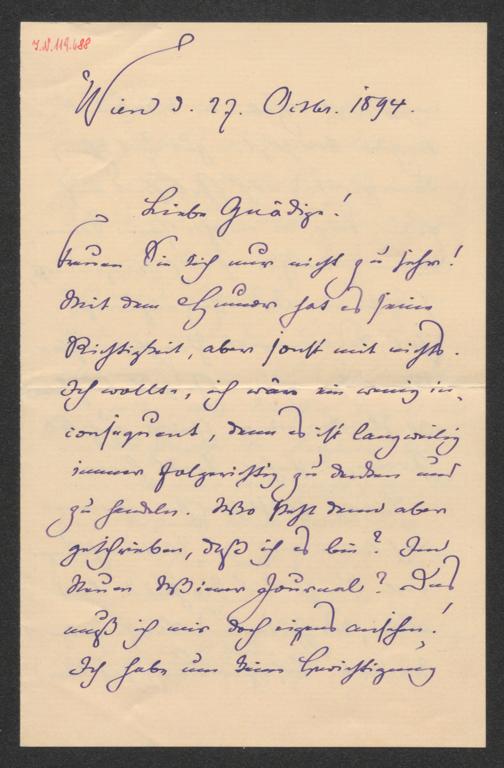 I.N. 119.688
Wien d. 27. Octbr. 1894.
Liebe Gnädige!
Freuen Sie sich nur nicht zu sehr!
Mit dem Humor hat es seine
Richtigkeit, aber sonst mit nichts.
Ich wollte, ich wäre ein wenig in-
consequent, denn es ist langweilig
immer folgerichtig zu denken und
zu handeln. Wo steht denn aber
geschrieben, daß ich es bin? Im
Neuen Wiener Journal? Das
muß ich mir doch eigens ansehen!
Ich habe um keine Berichtigung